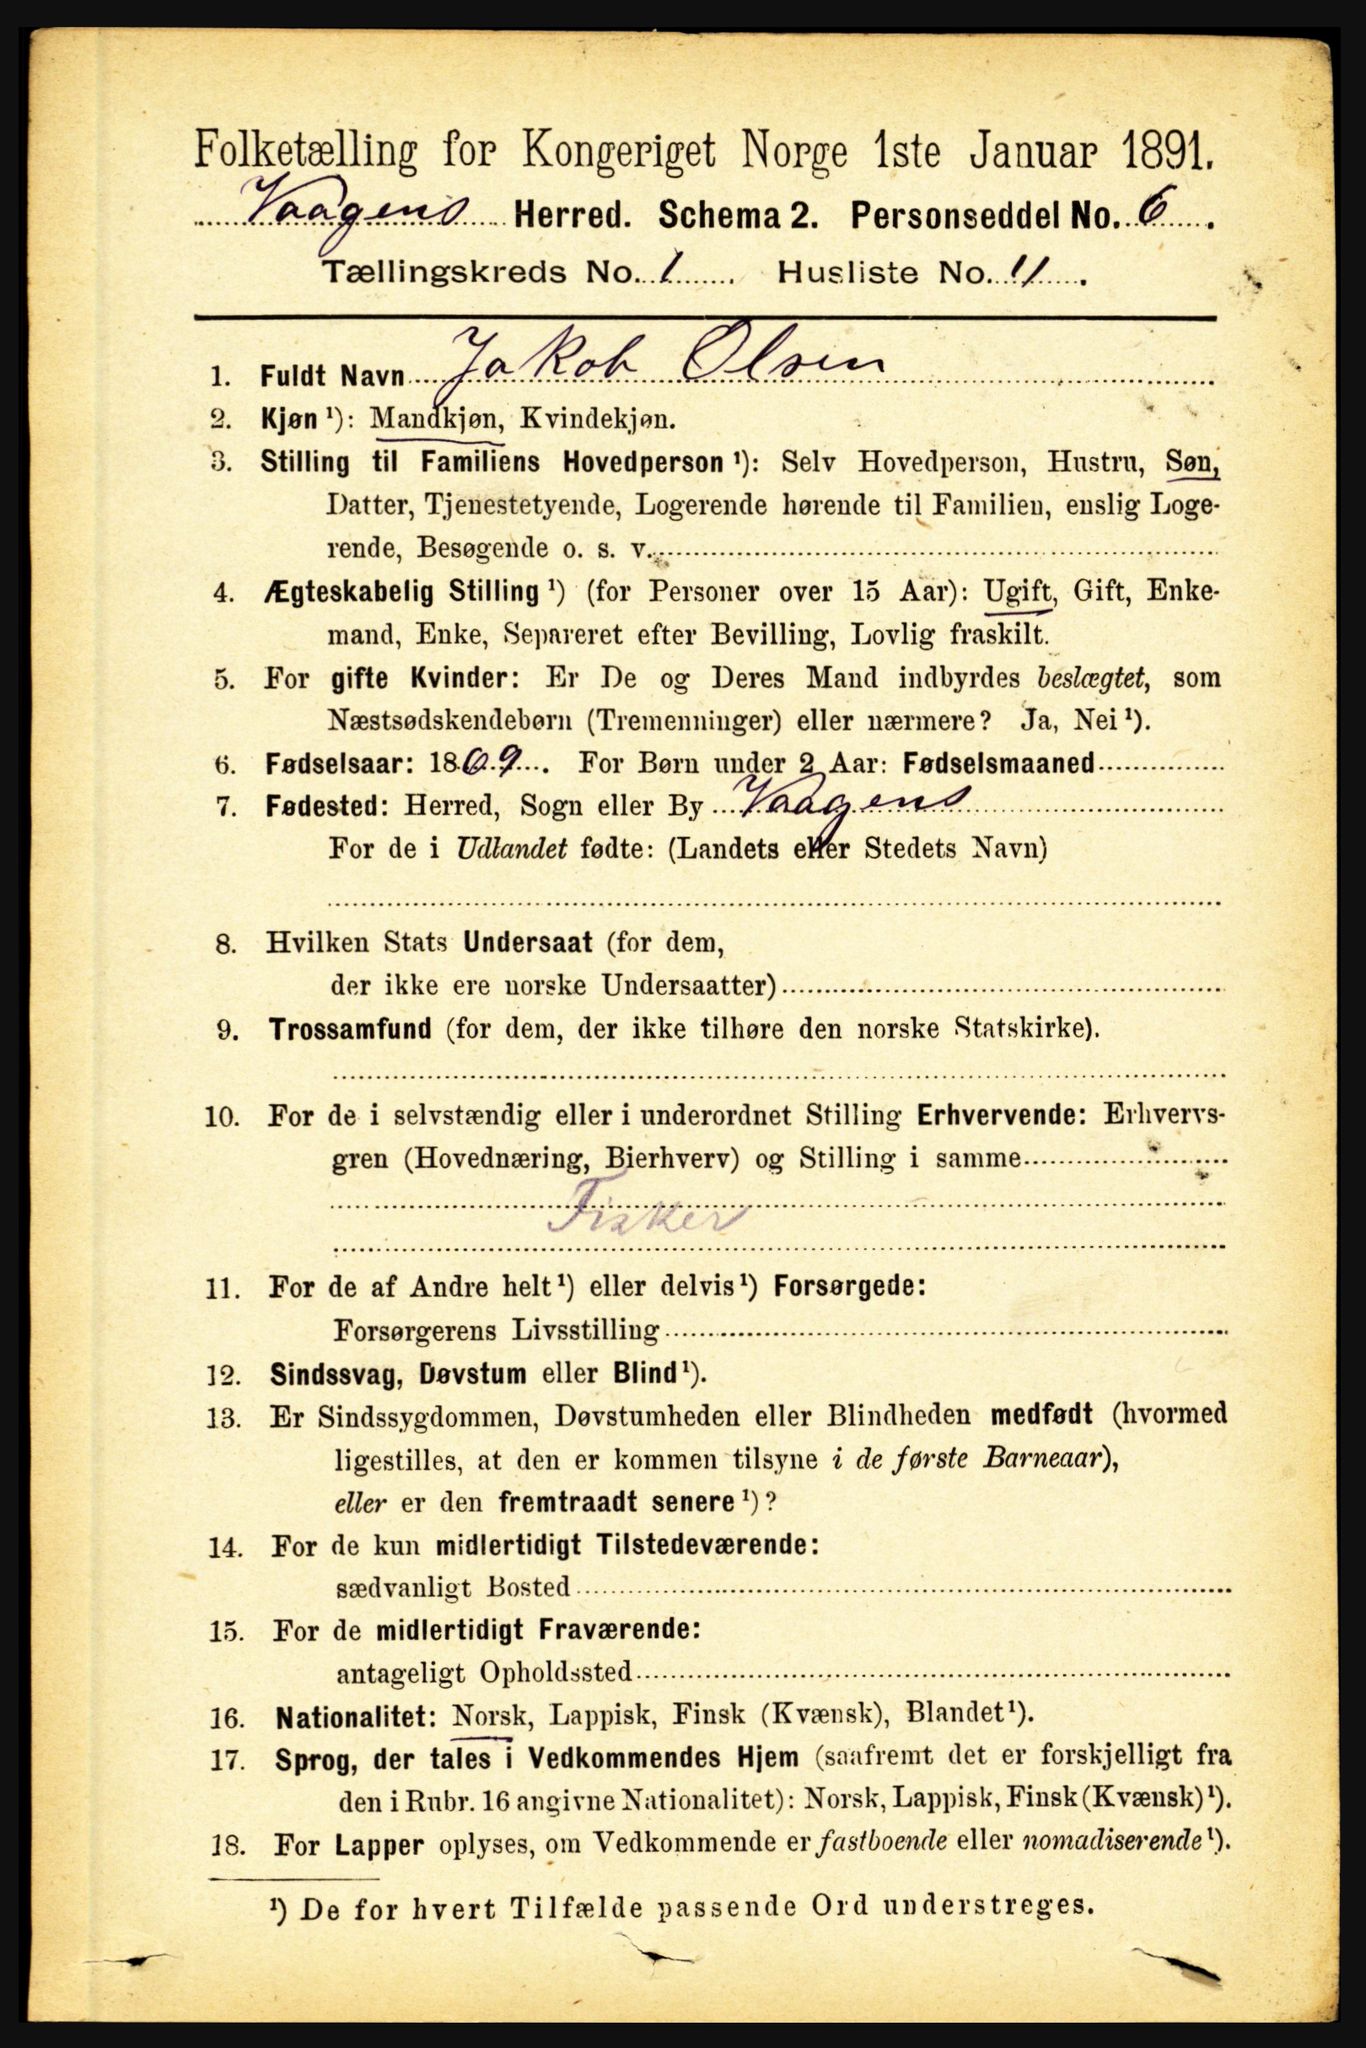 Folketælling for Kongeriget Norge 1ste Januar 1891.
Vaagens Herred. Schema 2. Personseddel No. 6.
Tællingskreds No. 1. Husliste No. 11.
1. Fuldt Navn Jakob Olsen
2. Kjøn ¹): Mandkjøn, Kvindekjøn.
3. Stilling til Familiens Hovedperson ¹): Selv Hovedperson, Hustru, Søn,
Datter, Tjenestetyende, Logerende hørende til Familien, enslig Loge-
rende, Besøgende o. s. v.
4. Ægteskabelig Stilling ¹) (for Personer over 15 Aar): Ugift, Gift, Enke-
mand, Enke, Separeret efter Bevilling, Lovlig fraskilt.
5. For gifte Kvinder: Er De og Deres Mand indbyrdes beslægtet, som
Næstsødskendebørn (Tremenninger) eller nærmere? Ja, Nei ¹).
6. Fødselsaar: 1869. For Børn under 2 Aar: Fødselsmaaned
7. Fødested: Herred, Sogn eller By Vaagens
For de i Udlandet fødte: (Landets eller Stedets Navn)
8. Hvilken Stats Undersaat (for dem,
der ikke ere norske Undersaatter)
9. Trossamfund (for dem, der ikke tilhøre den norske Statskirke).
10. For de i selvstændig eller i underordnet Stilling Erhvervende: Erhvervs-
gren (Hovednæring, Bierhverv) og Stilling i samme
Fisker
11. For de af Andre helt ¹) eller delvis ¹) Forsørgede:
Forsørgerens Livsstilling
12. Sindssvag, Døvstum eller Blind ¹).
13. Er Sindssygdommen, Døvstumheden eller Blindheden medfødt (hvormed
ligestilles, at den er kommen tilsyne i de første Barneaar),
eller er den fremtraadt senere ¹)?
14. For de kun midlertidigt Tilstedeværende:
sædvanligt Bosted
15. For de midlertidigt Fraværende:
antageligt Opholdssted
16. Nationalitet: Norsk, Lappisk, Finsk (Kvænsk), Blandet ¹).
17. Sprog, der tales i Vedkommendes Hjem (saafremt det er forskjelligt fra
den i Rubr. 16 angivne Nationalitet): Norsk, Lappisk, Finsk (Kvænsk) ¹).
18. For Lapper oplyses, om Vedkommende er fastboende eller nomadiserende ¹).
¹) De for hvert Tilfælde passende Ord understreges.